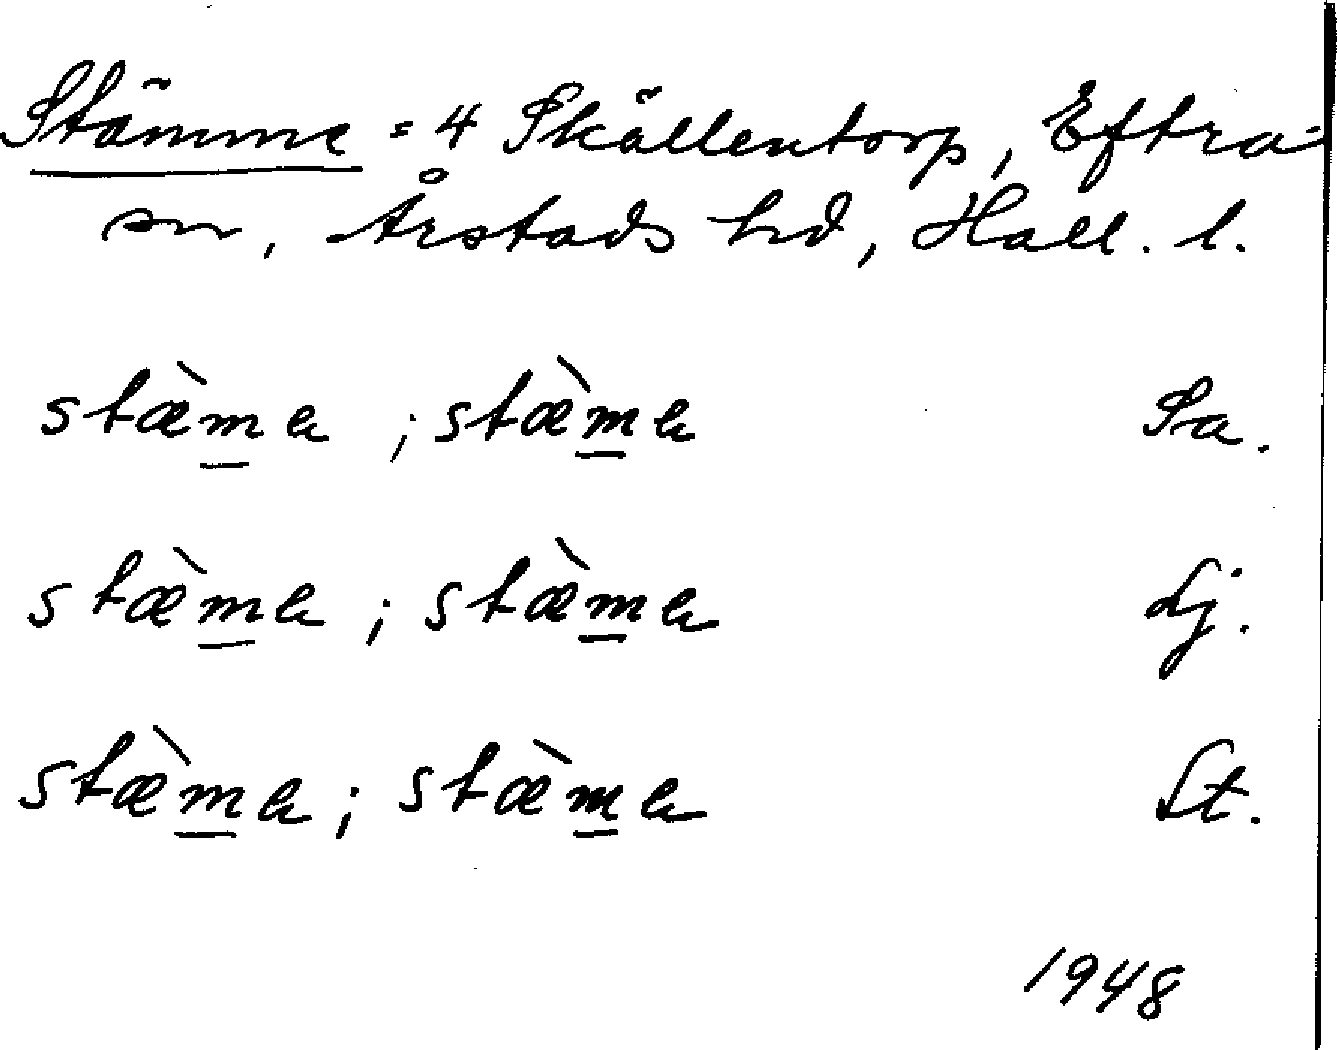 Stämme = 4 Skällentorp, Eftra
sn, Årstads hd, Hall. l.
stæ̀m̲e ; stæ̀m̲e Sa.
stæ̀m̲e ; stæ̀m̲e Lj.
stæ̀m̲e ; stæ̀m̲e St.
1948